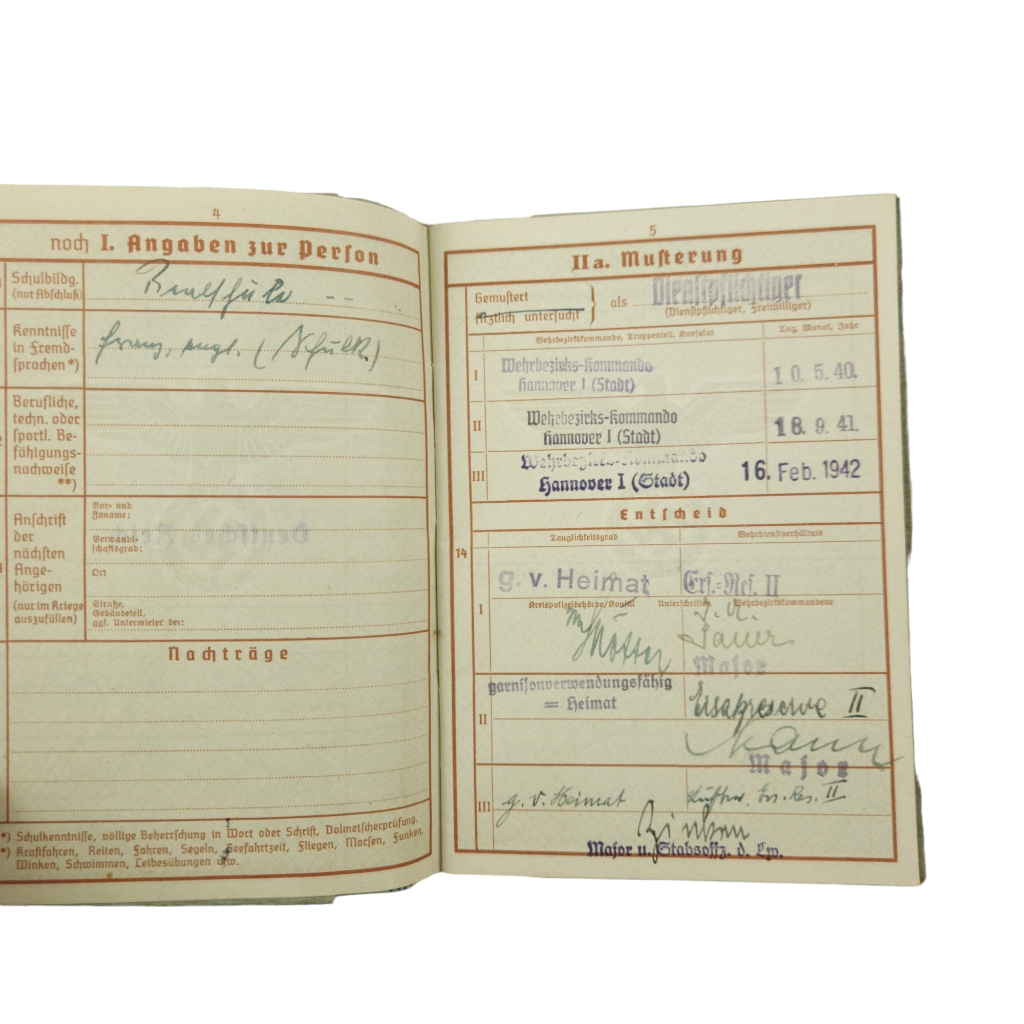 4
noch I. Angaben zur Person
Schulbildg.
(nur Abschluß)
Realschule --
Kenntnisse
in Fremd-
sprachen*)
franz. engl. (Schulk.)
Berufliche,
techn. oder
sportl. Be-
fähigungs-
nachweise
**)
Anschrift
der
nächsten
Ange-
hörigen
(nur im Kriege
auszufüllen)
Vor- und
Zuname:
Verwandt-
schaftsgrad:
Ort
Straße,
Gebäudeteil,
ggf. Untermieter bei:
Nachträge
*) Schulkenntnisse, völlige Beherrschung in Wort oder Schrift, Dolmetscherprüfung.
*) Kraftfahren, Reiten, Fahren, Segeln, Seefahrtzeit, Fliegen, Morsen, Funken,
Winken, Schwimmen, Leibesübungen usw.
5
IIa. Musterung
Gemustert
Ärztlich untersucht
als Dienstpflichtiger
(Dienstpflichtiger, Freiwilliger)
Wehrbezirkskommando, Truppenteil, Konsulat Tag, Monat, Jahr
I Wehrbezirks-Kommando
Hannover I (Stadt) 10.5.40.
II Wehrbezirks-Kommando
Hannover I (Stadt) 18.9.41.
III Wehrbezirks-Kommando
Hannover I (Stadt) 16. Feb. 1942
Entscheid
14
Tauglichkeitsgrad Wehrdienstverhältnis
I g. v. Heimat Ers.=Res. II
Kreispolizeibehörde/Konsul Unterschriften Wehrbezirkskommandeur
Major
II garnisonverwendungsfähig
= Heimat
Ersatzreserve II
Major
III g. v. Heimat Luftw. Ers. Res. II
Major u. Stabsoffz. d. Lw.